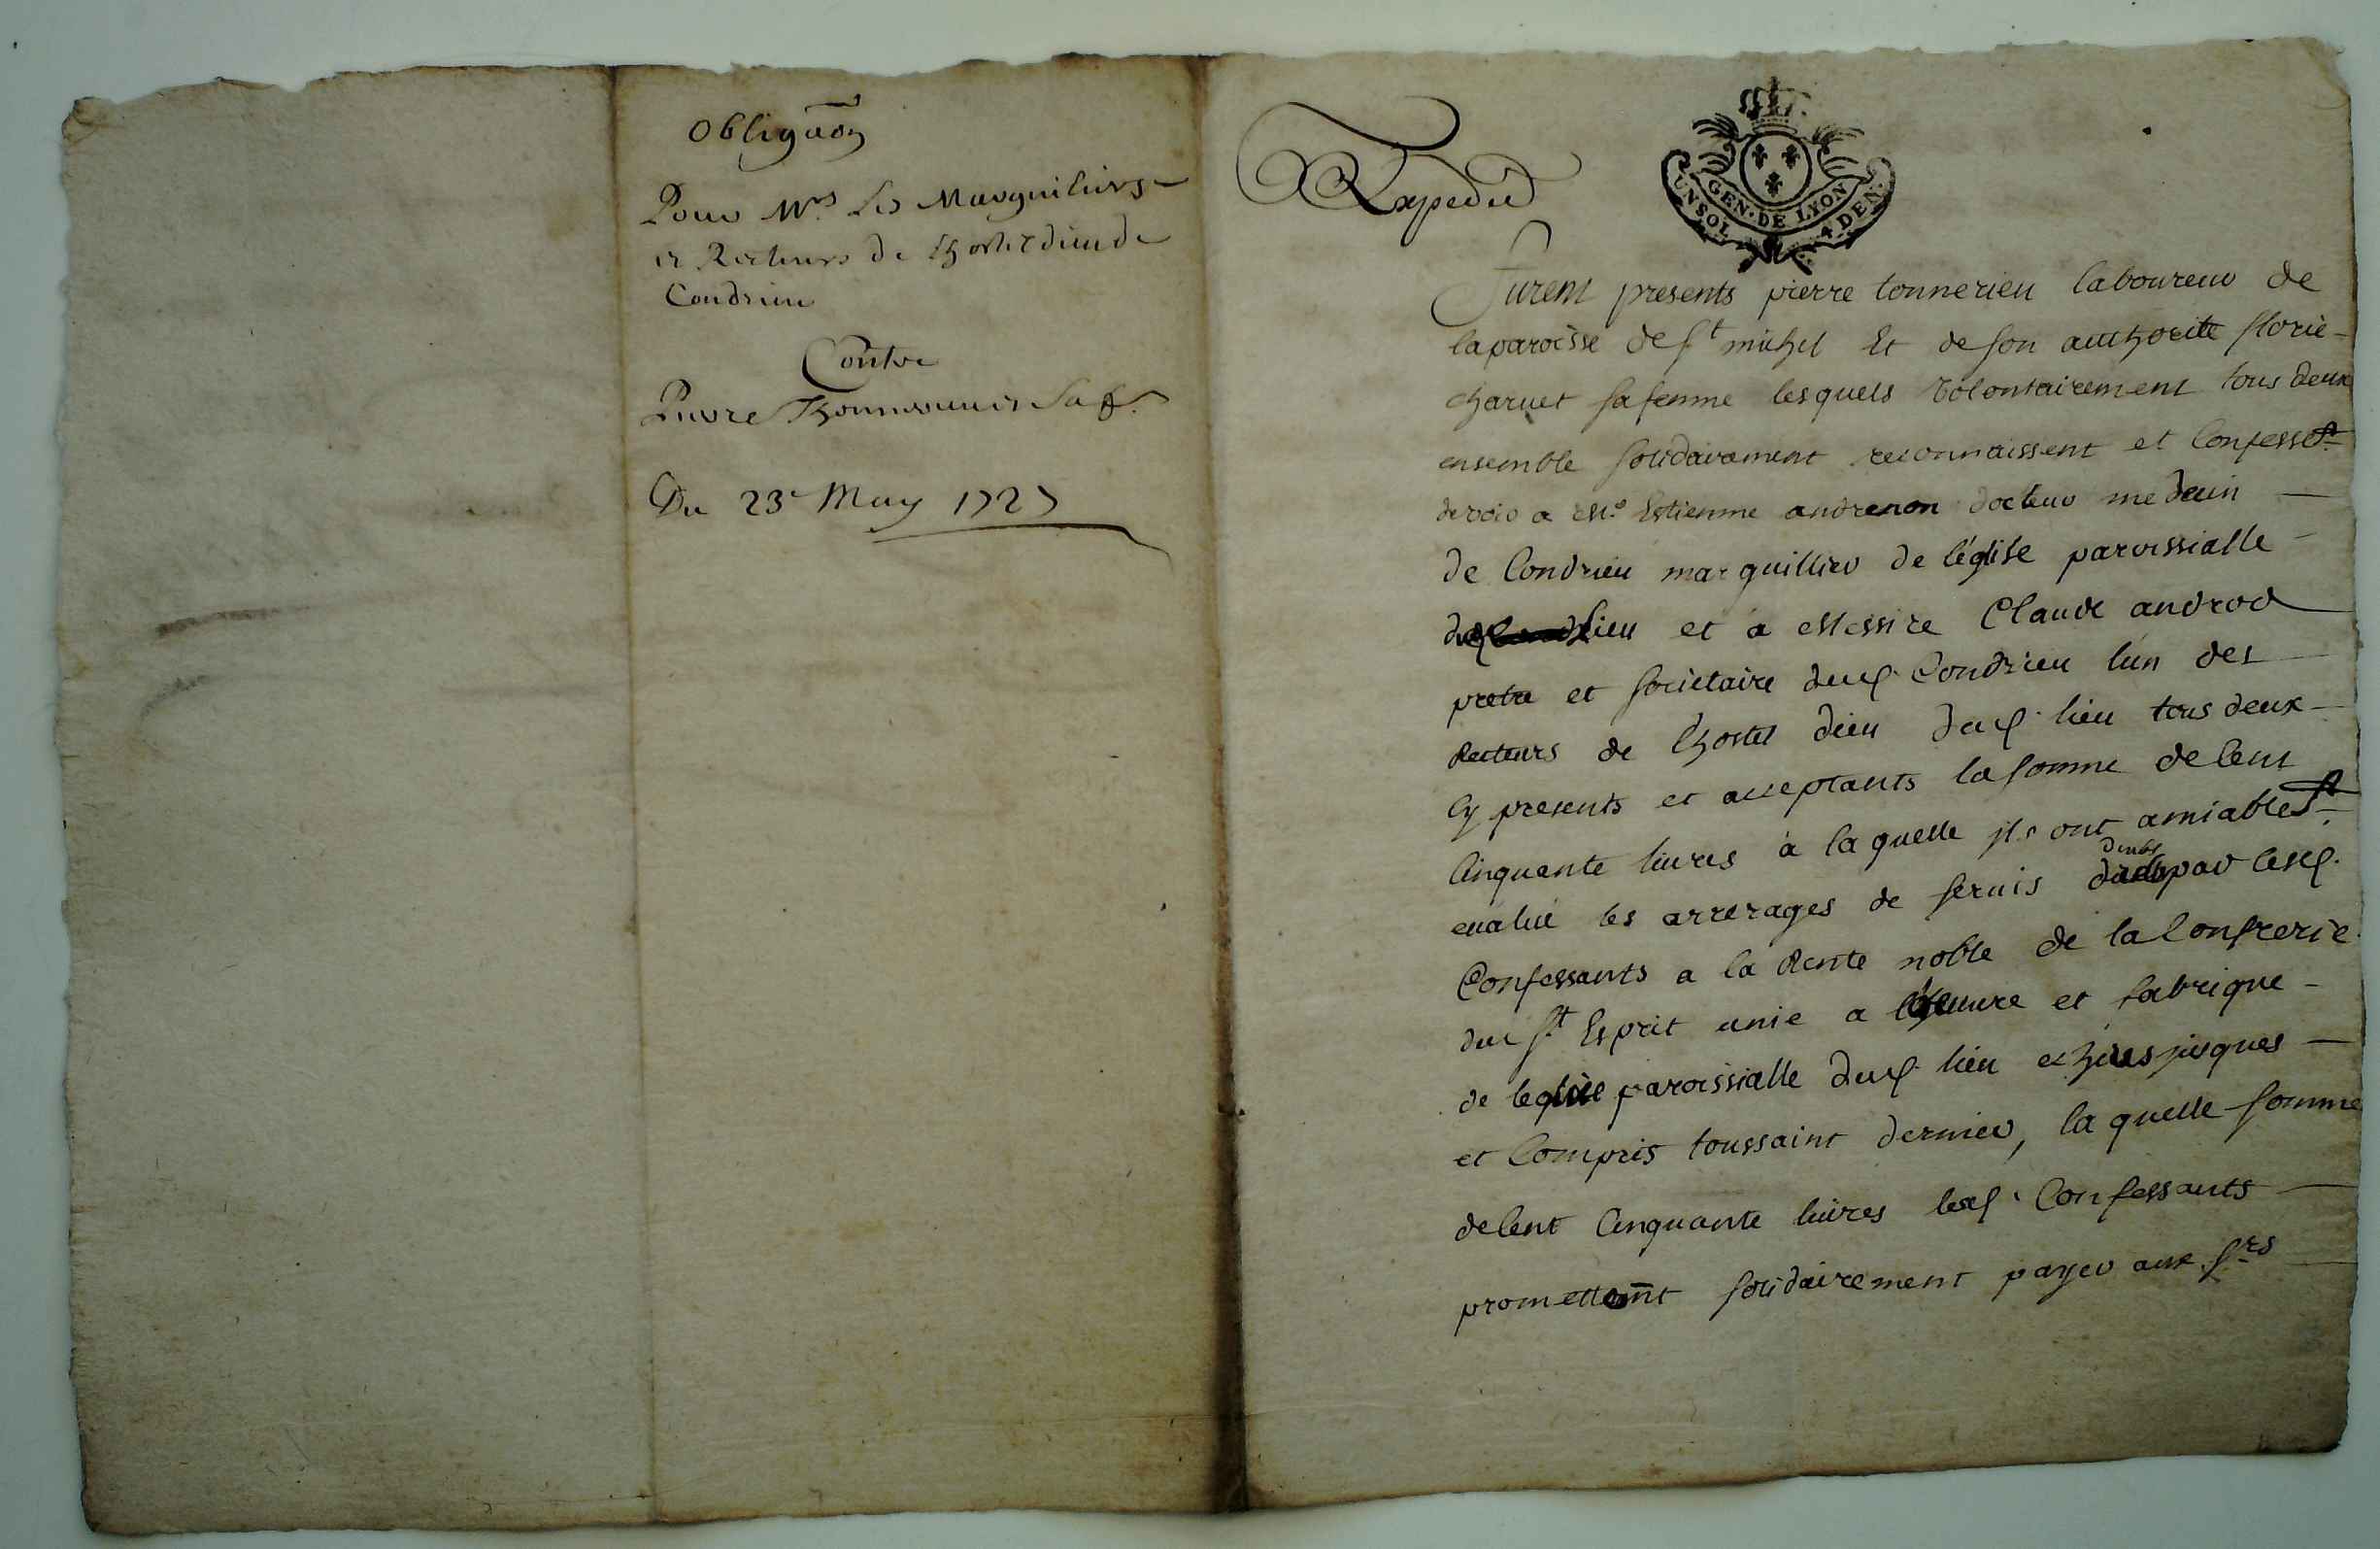 Obligaõn
Pour Mrs Les Marguiliers
et Recteurs de Lhostel dieu de
Condrieu
Contre
Pierre Thonnerieu et Sa f.
Du 23e May 1727
Expedié
GEN. DE LYON
UN SOL 4 DEN.
Furent presents pierre tonnerieu laboureur de
la paroisse de st michel Et de son authorite florie
charuet sa femme lesquels volontairement tous deux
ensemble solidairement reconnaissent et Confesst
devoir a Me Estienne andrenon docteur medecin
de Condrieu marguillier de léglise paroissialle
dud lieu et a Messire Claude androd
pretre et sosietaire dud Condrieu lun des
Recteurs de lhostel dieu dud lieu tous deux
Cy presents et acceptants la somme de Cent
Cinquante liures à la quelle jls ont amiablet
eualué les arrerages de seruis deubs par lesd
Confessants a la Rente noble de la Confrerie
du st Esprit unie a lœuure et fabrique
de leglise paroissialle dud lieu jusques
et Compris toussaint dernier, la quelle somme
de Cent Cinquante liures lesd Confessants
promettent solidairement payer aux srs